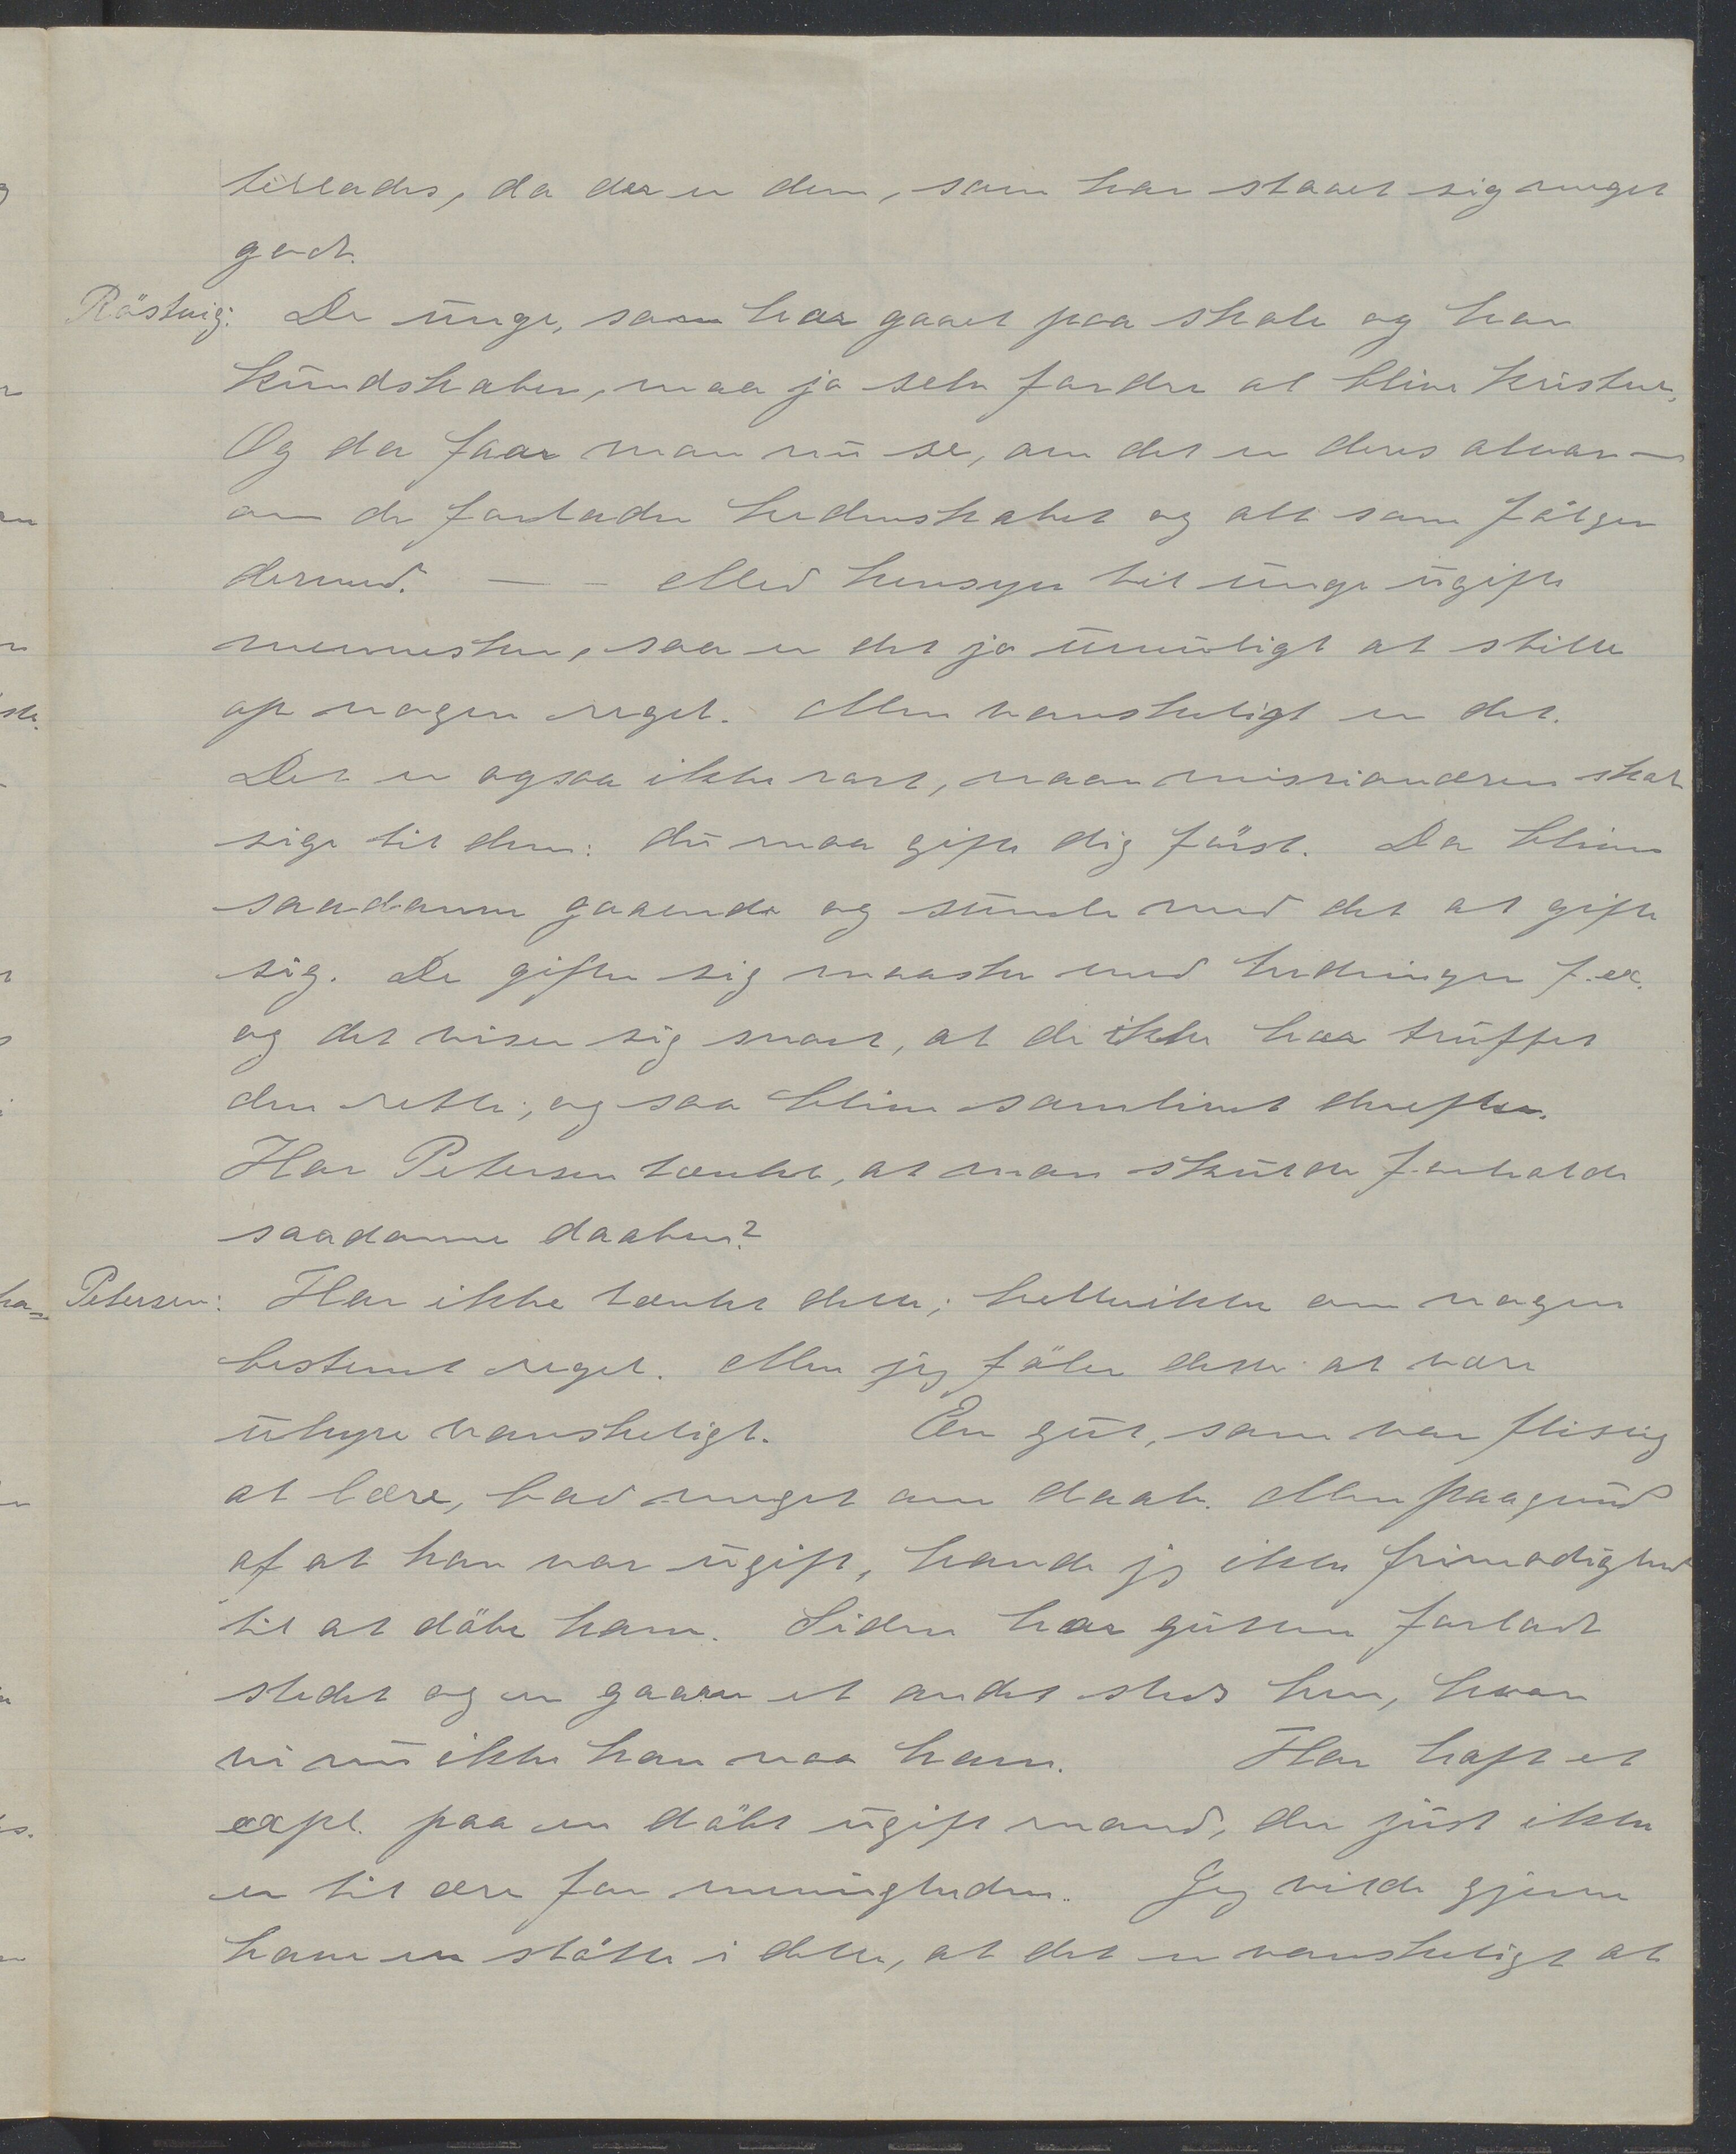 tillades, da der er dem, som har staaet sig meget
godt.
Röstvig: De unge, som har gaaet paa skole og har
kundskaber, maa jo selv fordre at blive kristne.
Og da faar man nu se, om det er deres alvor —
om de forlader hedenskabet og alt som fölger
dermed. — – Med hensyn til unge ugifte
mennesker, saa er det jo umuligt at stille
op nogen regel. Men vanskeligt er det.
Det er ogsaa ikke rart, naar missionæren skal
sige til dem: du maa gifte dig först. Da bliver
saadanne gaaende og stunde med det at gifte
sig. De gifter sig maaske med hedninger f. ex.
og det viser sig snart, at de ikke har truffet
den rette; og saa bliver samlivet derefter.
Har Petersen tænkt, at man skulde forholde
saadanne daaben?
Petersen: Har ikke tænkt dette; hellerikke om nogen
bestemt regel. Men jeg föler dette at være
uhyre vanskeligt. En gut, som var flittig
at lære, bad meget om daab. Men paagrund
af at han var ugift, havde jeg ikke frimodighed
til at döbe ham. Siden har gutten forladt
stedet og er gaaen et andet sted hen, hvor
vi nu ikke kan naa ham. Har haft et
expl. paa en döbt ugift mand, der just ikke
er til ære for menigheden. Jeg vilde gjerne
have en stötte i dette, at det er vanskeligt at